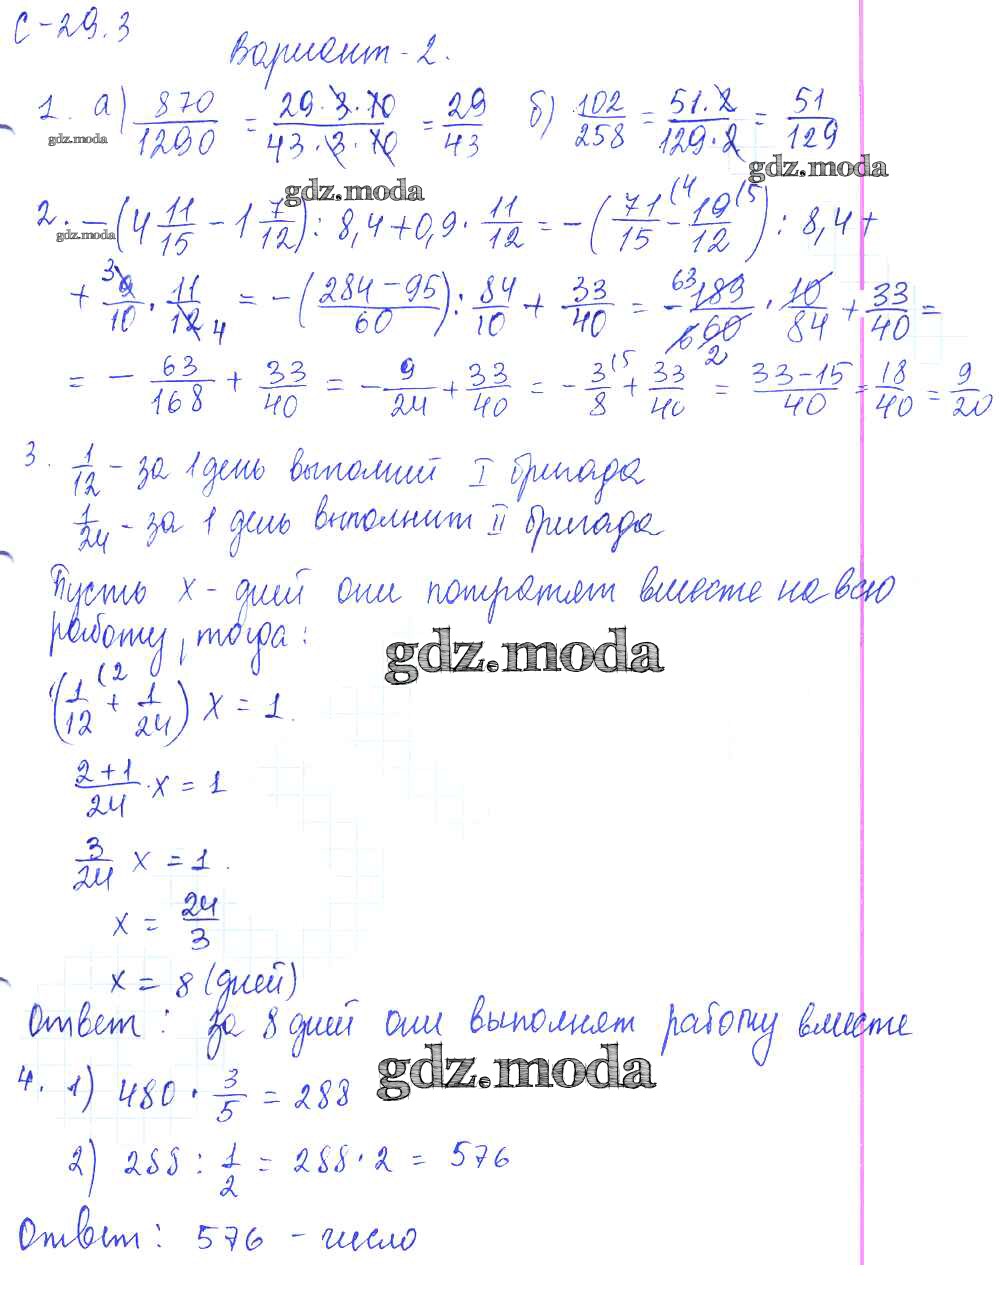 С-29.3
Вариант-2.
1. а) 870/1290 = 29·3·10/43·3·10 = 29/43 б) 102/258 = 51·2/129·2 = 51/129
gdz.moda
gdz.moda
gdz.moda
2. -(4 11/15 - 1 7/12) : 8,4 + 0,9 · 11/12 = -(71/15 (4 - 19/12 (5) : 8,4 +
gdz.moda
+ 3 9/10 · 11/12 4 = -(284-95/60) : 84/10 + 33/40 = - 63 189/6 60 · 10/84 + 33/40 =
= - 63/168 + 33/40 = - 9/24 + 33/40 = - 3/8 (5 + 33/40 2 = 33-15/40 = 18/40 = 9/20
3. 1/12 - за 1 день выполний I бригада
1/24 - за 1 день выполнит II бригада
Пусть х - дней они потратят вместе на всю
работу, тогда:
gdz.moda
(1/12 (2 + 1/24) х = 1.
2+1/24 · х = 1
3/24 х = 1.
х = 24/3
х = 8 (дней)
Ответ: за 8 дней они выполнят работу вместе
gdz.moda
4. 1) 480 · 3/5 = 288
2) 288 : 1/2 = 288·2 = 576
Ответ: 576 - число